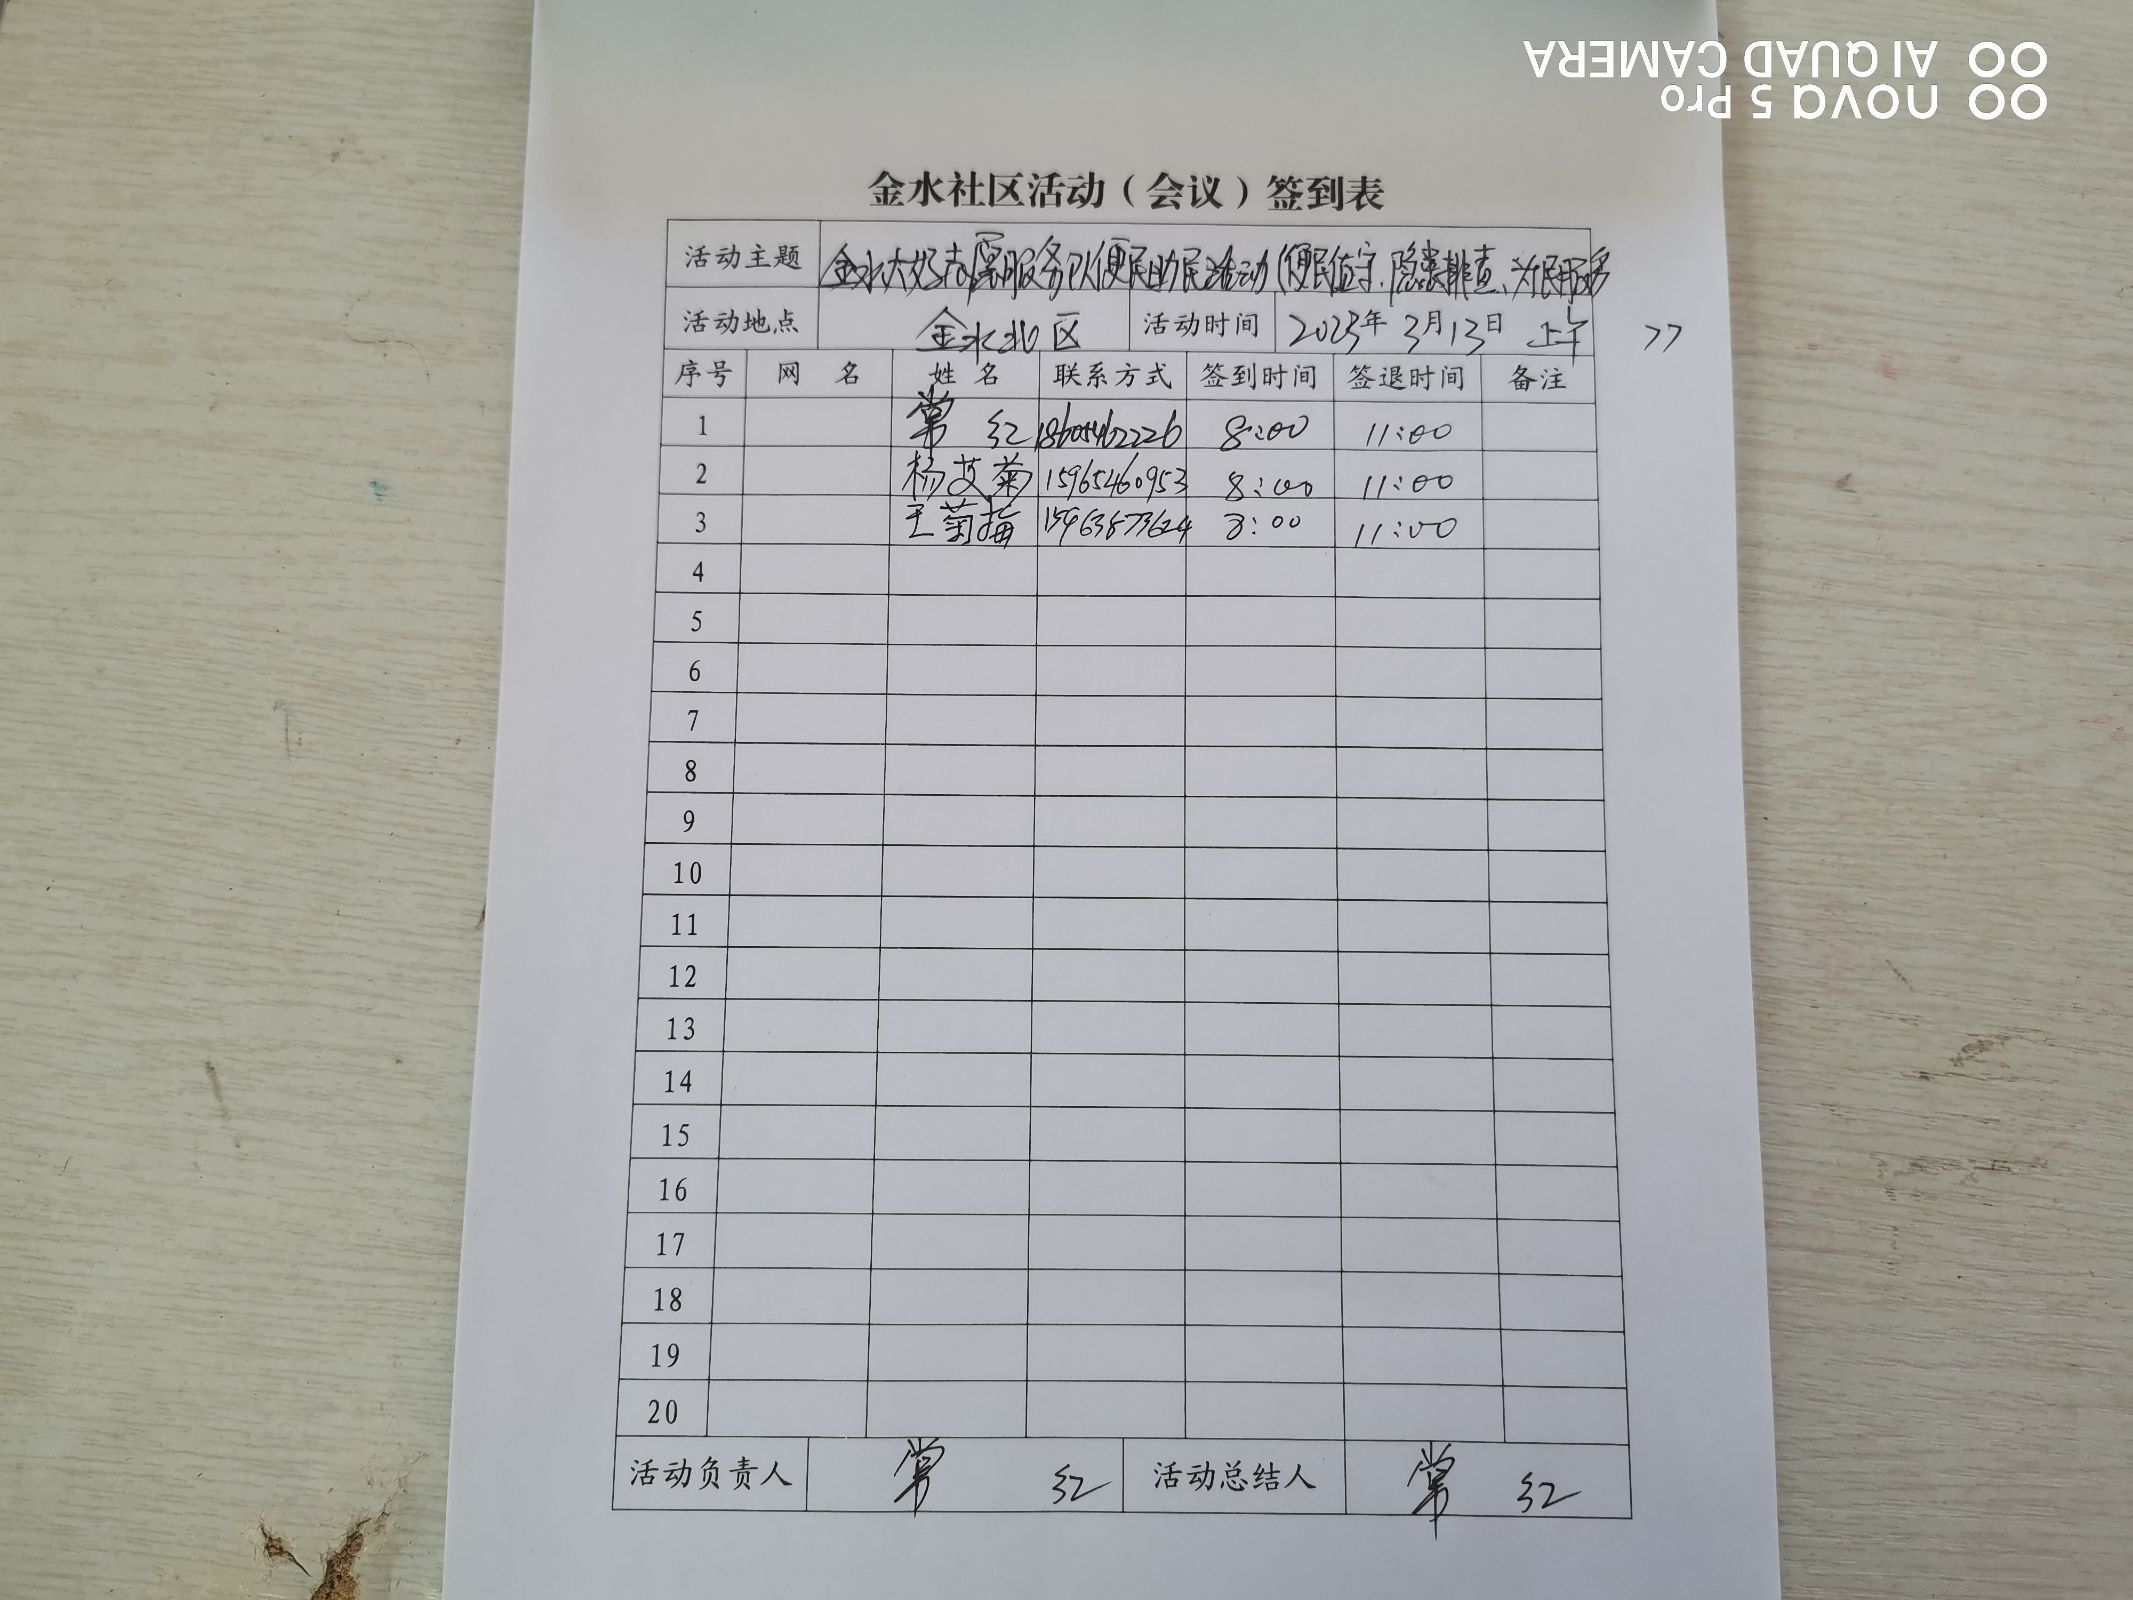 AI QUAD CAMERA
nova 5 Pro
金水社区活动（会议）签到表
活动主题 金水大好志愿服务队便民助民活动（便民值守、隐患排查、为民服务
活动地点 金水北区 活动时间 2023年3月13日 上午 77
序号 网 名 姓 名 联系方式 签到时间 签退时间 备注
1 常 红 18605462226 8:00 11:00
2 杨艾菊 15965460953 8:00 11:00
3 王菊梅 15963873624 8:00 11:00
4
5
6
7
8
9
10
11
12
13
14
15
16
17
18
19
20
活动负责人 常 红 活动总结人 常 红